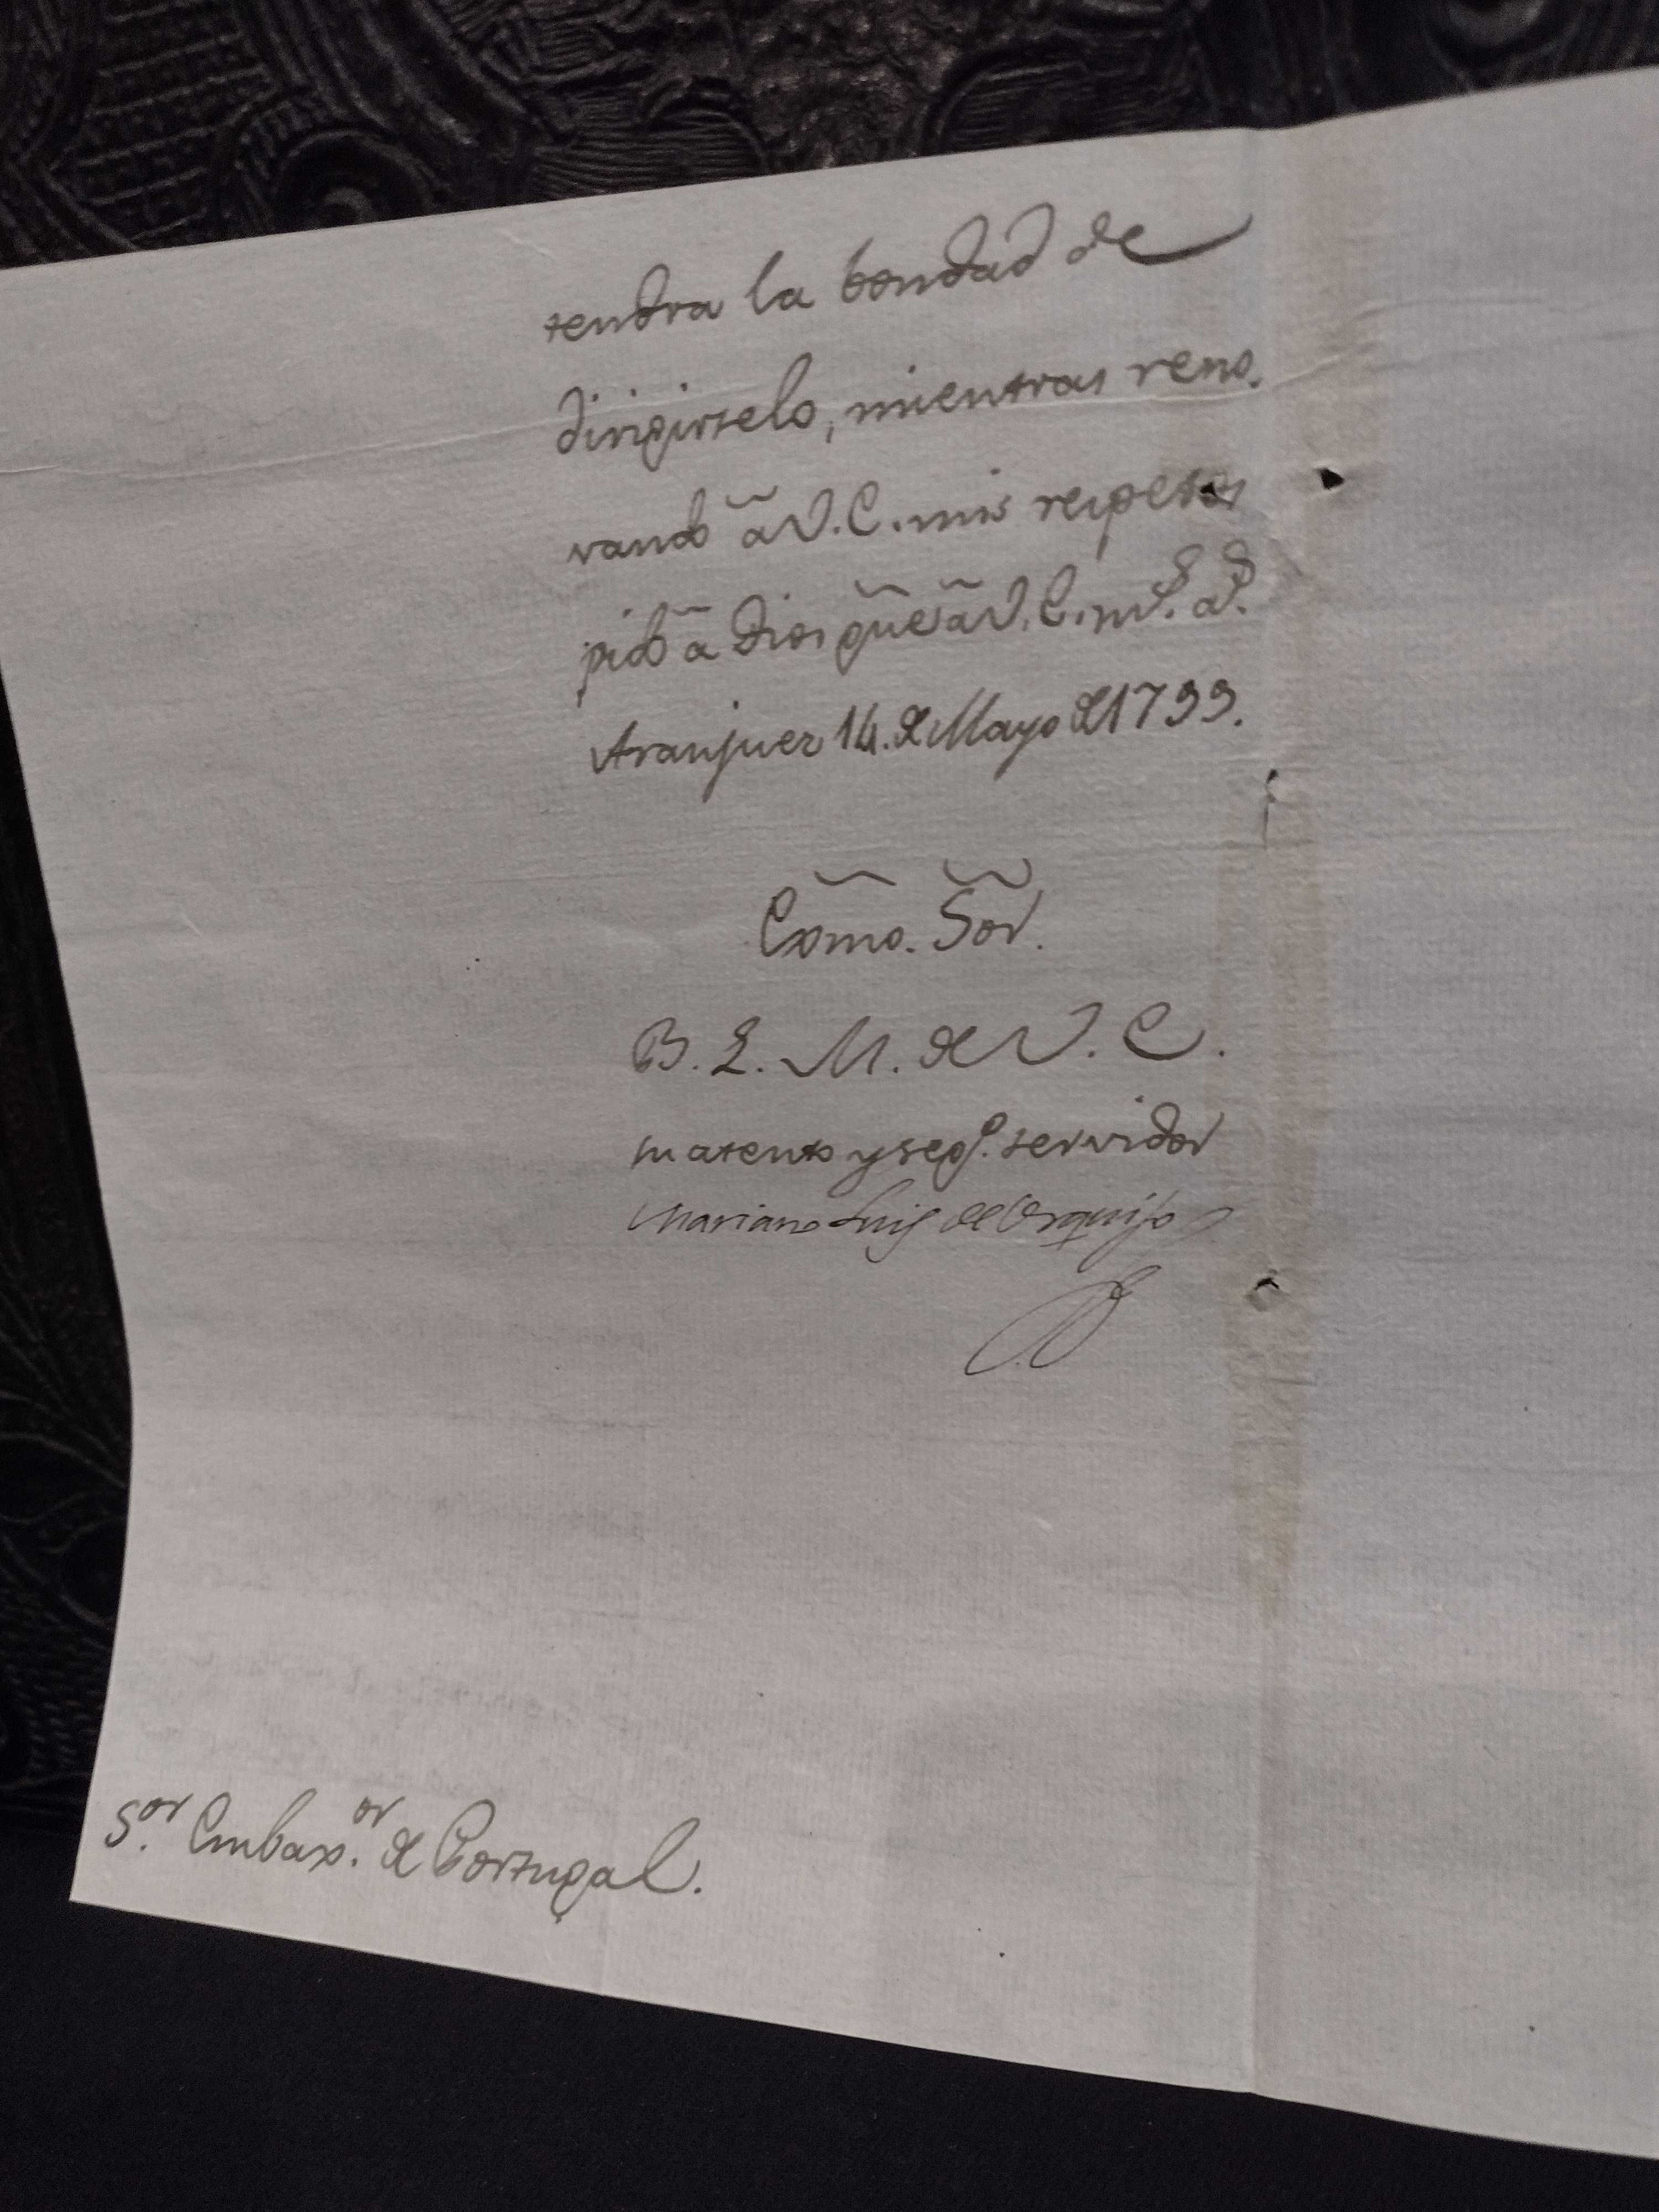 tendra la bondad de
dirigirselo, mientras reno-
vando â V.E. mis respetos
pido â Dios gũe â V.E. m.s a.s
Aranjuez 14. de Mayo de 1799.
Exmõ. Sõr.
B. L. M. de V. E.
su atento y seg.o servidor
Mariano Luis de Urquijo
S.or Embax.or de Portugal.